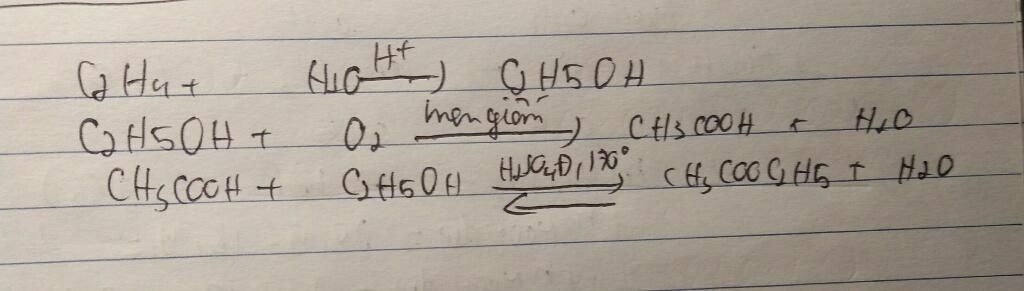 C2H4 + H2O H+ → C2H5OH
C2H5OH + O2 men giấm → CH3COOH + H2O
CH3COOH + C2H5OH H2SO4Đ, 170° ⇌ CH3COOC2H5 + H2O